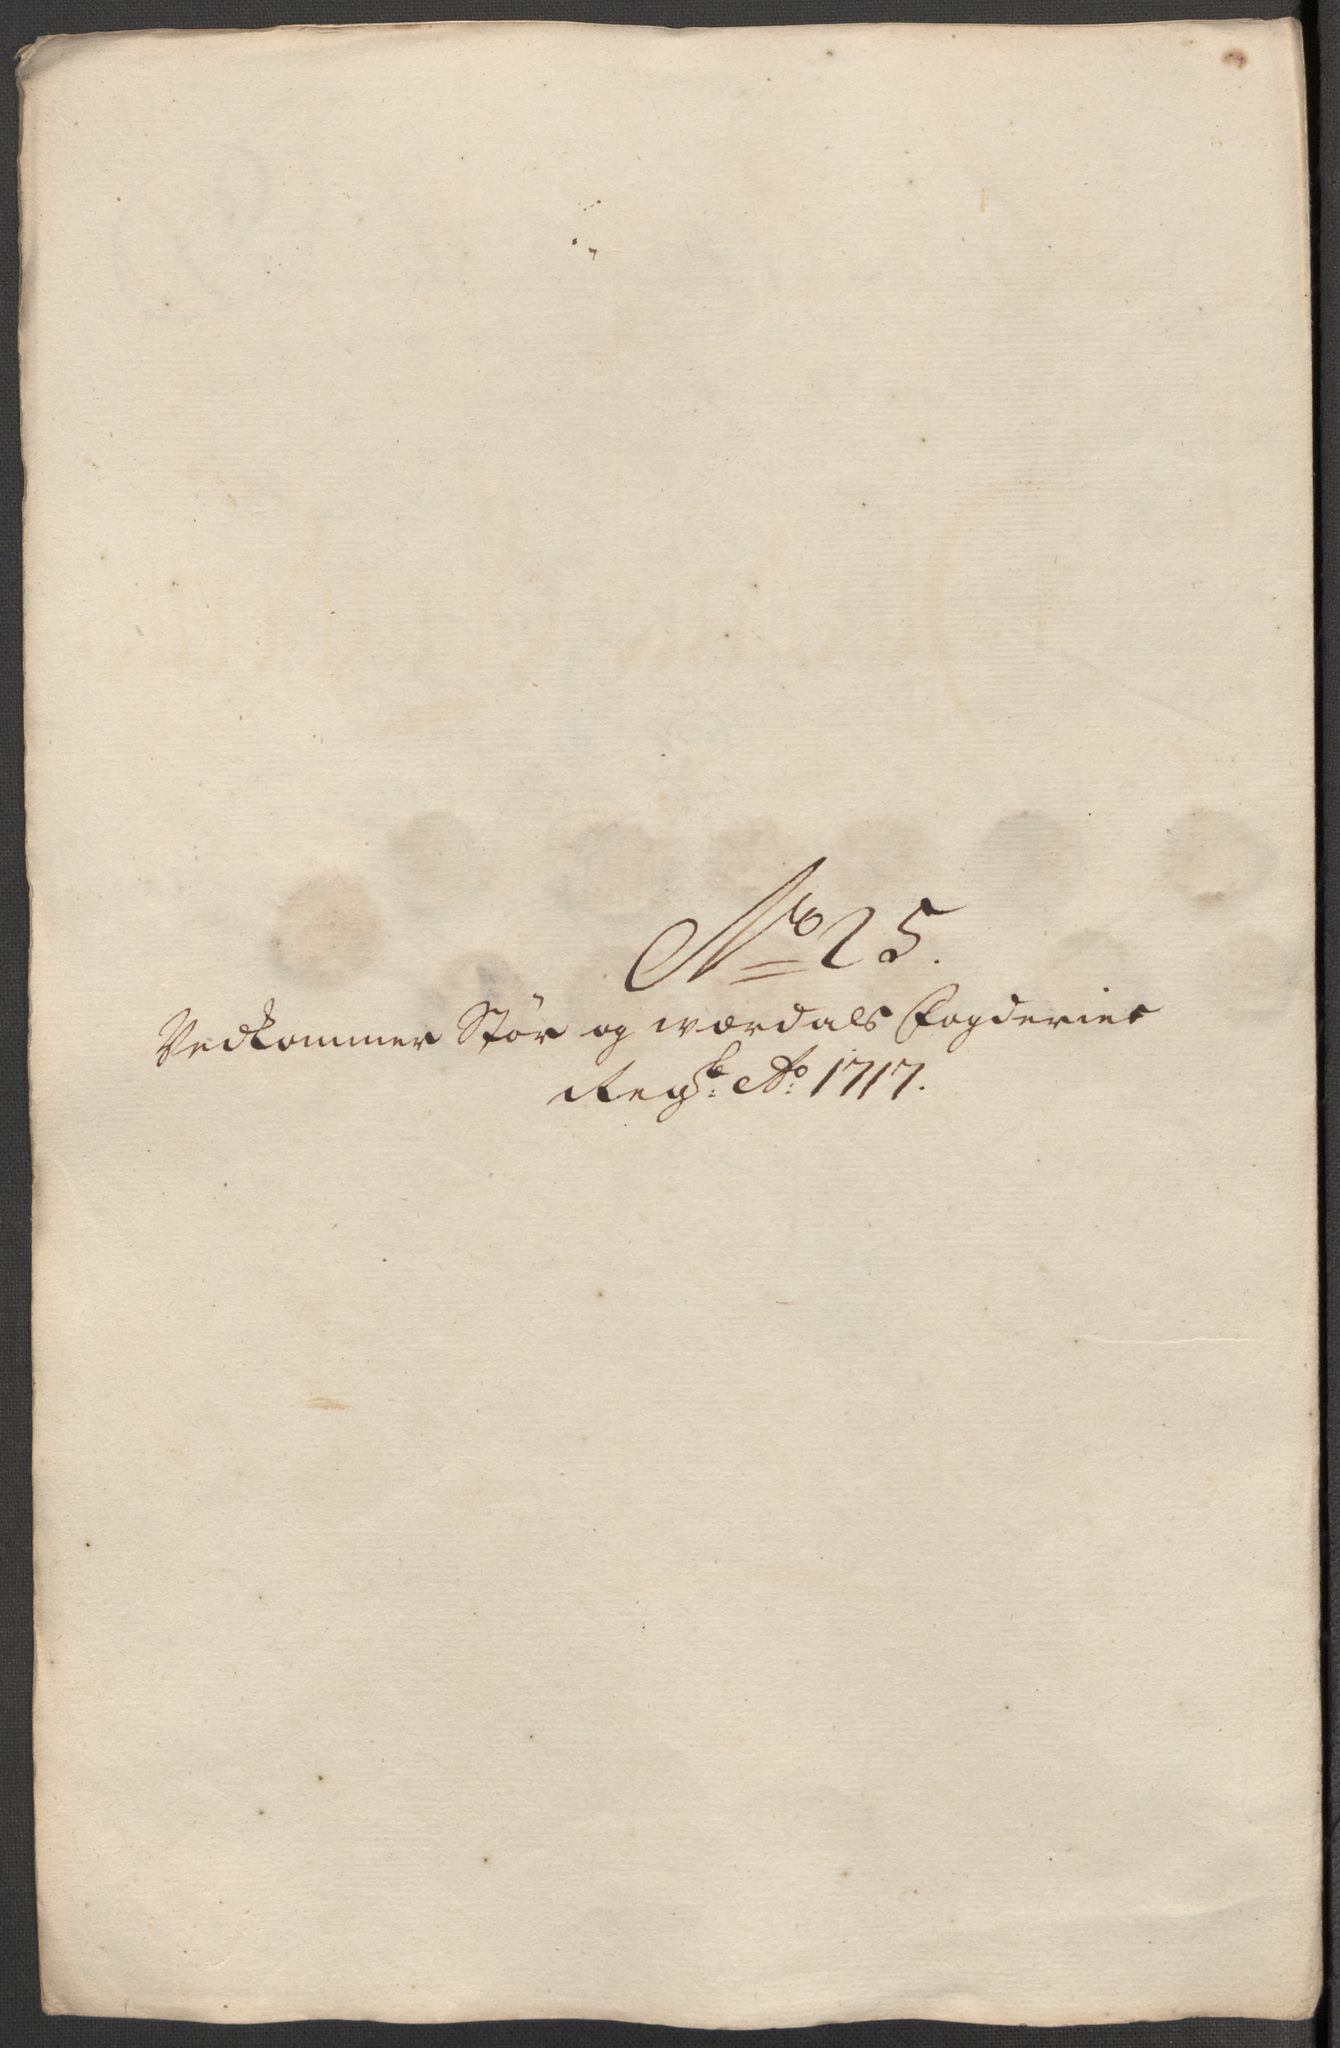 No 25.
Vedkommer Stør og værdals Fogderies
Regsk: Ao: 1717.